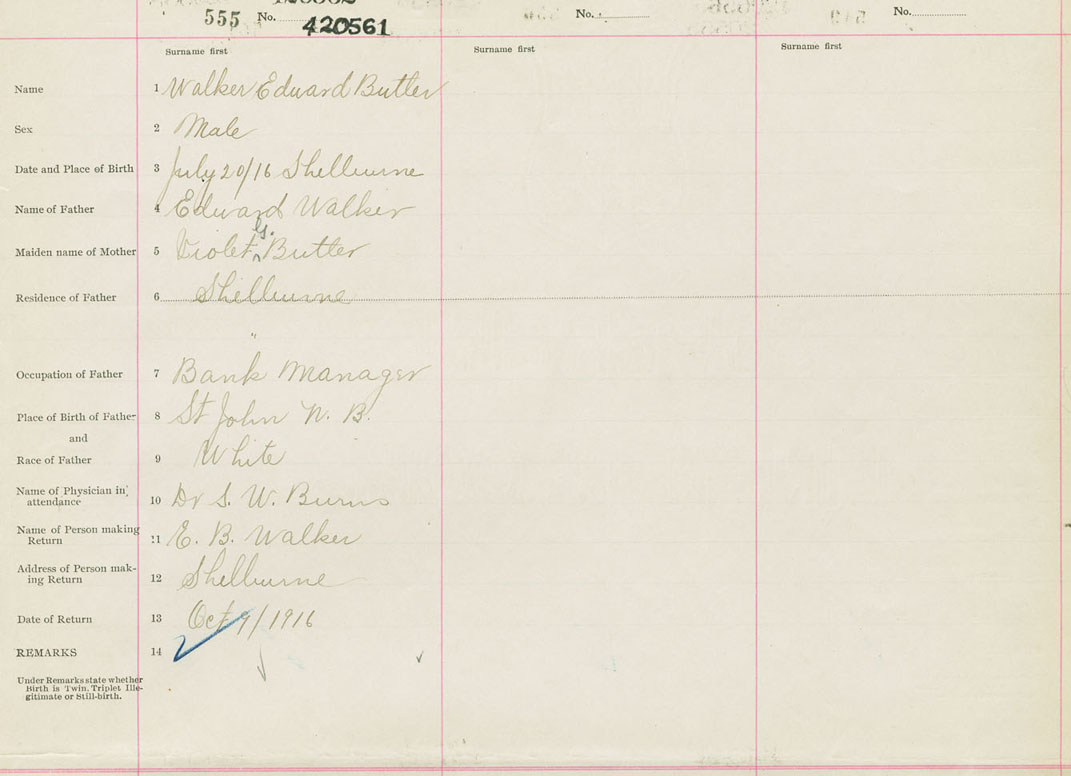 555 No. 420561 No. No.
Surname first Surname first Surname first
Name 1 Walker Edward Butler
Sex 2 Male
Date and Place of Birth 3 July 20/16 Shelburne
Name of Father 4 Edward Walker
Maiden name of Mother 5 Violet G. Butler
Residence of Father 6 Shelburne
"
Occupation of Father 7 Bank Manager
Place of Birth of Father 8 St John N. B.
and
Race of Father 9 White
Name of Physician in
attendance 10 Dr S. W. Burns
Name of Person making
Return 11 E. B. Walker
Address of Person mak-
ing Return 12 Shelburne
Date of Return 13 Oct 9/1916
REMARKS 14
Under Remarks state whether
Birth is Twin, Triplet Ille-
gitimate or Still-birth.